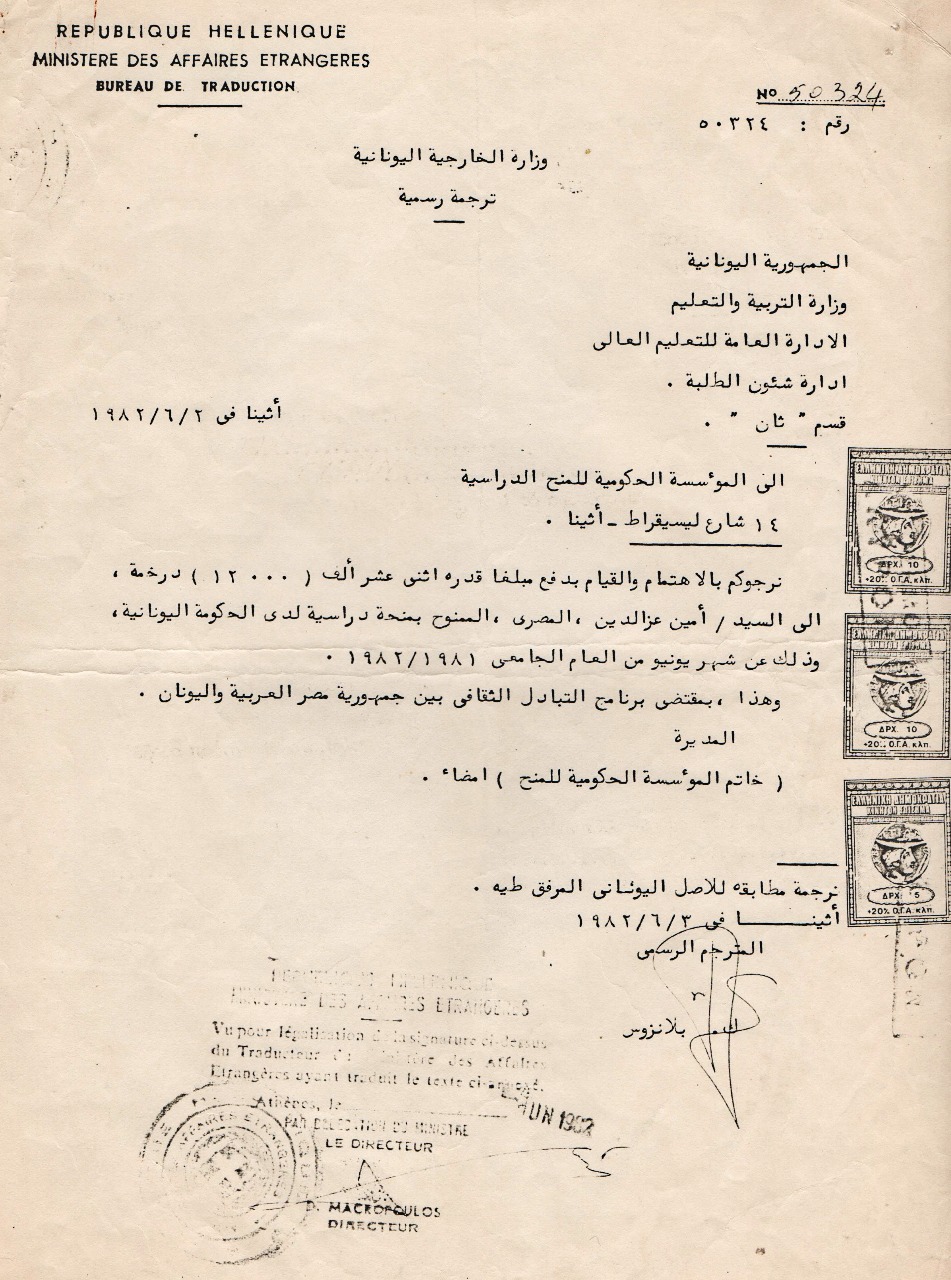 REPUBLIQUE HELLENIQUE
MINISTERE DES AFFAIRES ETRANGERES
BUREAU DE TRADUCTION
No 50324
رقم : ٥٠٣٢٤
وزارة الخارجية اليونانية
ترجمة رسمية
الجمهورية اليونانية
وزارة التربية والتعليم
الادارة العامة للتعليم العالى
ادارة شئون الطلبة .
قسم " ثان " .
أثينا فى ١٩٨٢/٦/٢
الى المؤسسة الحكومية للمنح الدراسية
١٤ شارع ليسيقراط - أثينا .
نرجوكم بالاهتمام والقيام بدفع مبلغا قدره اثنى عشر ألف ( ١٢٠٠٠ ) درخمة ،
الى السيد / أمين عزالدين ، المصرى ، الممنوح بمنحة دراسية لدى الحكومة اليونانية،
وذلك عن شهر يونيو من العام الجامعى ١٩٨٢/١٩٨١ .
وهذا ، بمقتضى برنامج التبادل الثقافى بين جمهورية مصر العربية واليونان .
المديرة
( خاتم المؤسسة الحكومية للمنح ) امضاء .
ΕΛΛΗΝΙΚΗ ΔΗΜΟΚΡΑΤΙΑ
ΚΙΝΗΤΟΝ ΕΠΙΣΗΜΑ
ΔΡΧ. 10
+20% Ο.Γ.Α. κλπ.
ΕΛΛΗΝΙΚΗ ΔΗΜΟΚΡΑΤΙΑ
ΚΙΝΗΤΟΝ ΕΠΙΣΗΜΑ
ΔΡΧ. 10
+20% Ο.Γ.Α. κλπ.
ΕΛΛΗΝΙΚΗ ΔΗΜΟΚΡΑΤΙΑ
ΚΙΝΗΤΟΝ ΕΠΙΣΗΜΑ
ΔΡΧ. 5
+20% Ο.Γ.Α. κλπ.
ترجمة مطابقة للاصل اليونانى المرفق طيه .
أثينـــــا فى ١٩٨٢/٦/٣
المترجم الرسمى
ك. بلانزوس
REPUBLIQUE HELLENIQUE
MINISTERE DES AFFAIRES ETRANGERES
Vu pour légalisation de la signature ci-dessus
du Traducteur du Ministère des Affaires
Etrangères ayant traduit le texte ci-annexé.
Athènes, le
JUN 1982
PAR DELEGATION DU MINISTRE
LE DIRECTEUR
D. MACROPOULOS
DIRECTEUR
AFFAIRES ETRANGERES